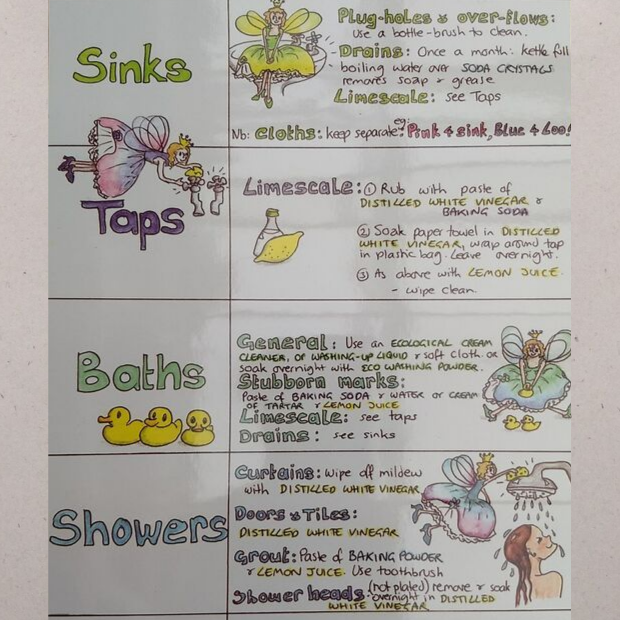 Sinks
Plug-holes & over-flows:
Use a bottle-brush to clean.
Drains: Once a month: kettle full
boiling water over SODA CRYSTALS
removes soap & grease
Limescale: see Taps
Nb: Cloths: keep separate eg. Pink 4 sink, Blue 4 Loo!
Taps
Limescale: ① Rub with paste of
DISTILLED WHITE VINEGAR &
BAKING SODA
② Soak paper towel in DISTILLED
WHITE VINEGAR, wrap around tap
in plastic bag. Leave overnight.
③ As above with LEMON JUICE.
- Wipe clean.
Baths
General: Use an ECOLOGICAL CREAM
CLEANER, or WASHING-UP LIQUID & soft cloth or
soak overnight with ECO WASHING POWDER.
Stubborn marks:
Paste of BAKING SODA & WATER or CREAM
OF TARTAR & LEMON JUICE
Limescale: see taps
Drains: see sinks
Showers
Curtains: wipe off mildew
with DISTILLED WHITE VINEGAR
Doors & Tiles:
DISTILLED WHITE VINEGAR
Grout: Paste of BAKING POWDER
& LEMON JUICE. Use toothbrush
Shower heads: (not plated) remove & soak
overnight in DISTILLED
WHITE VINEGAR